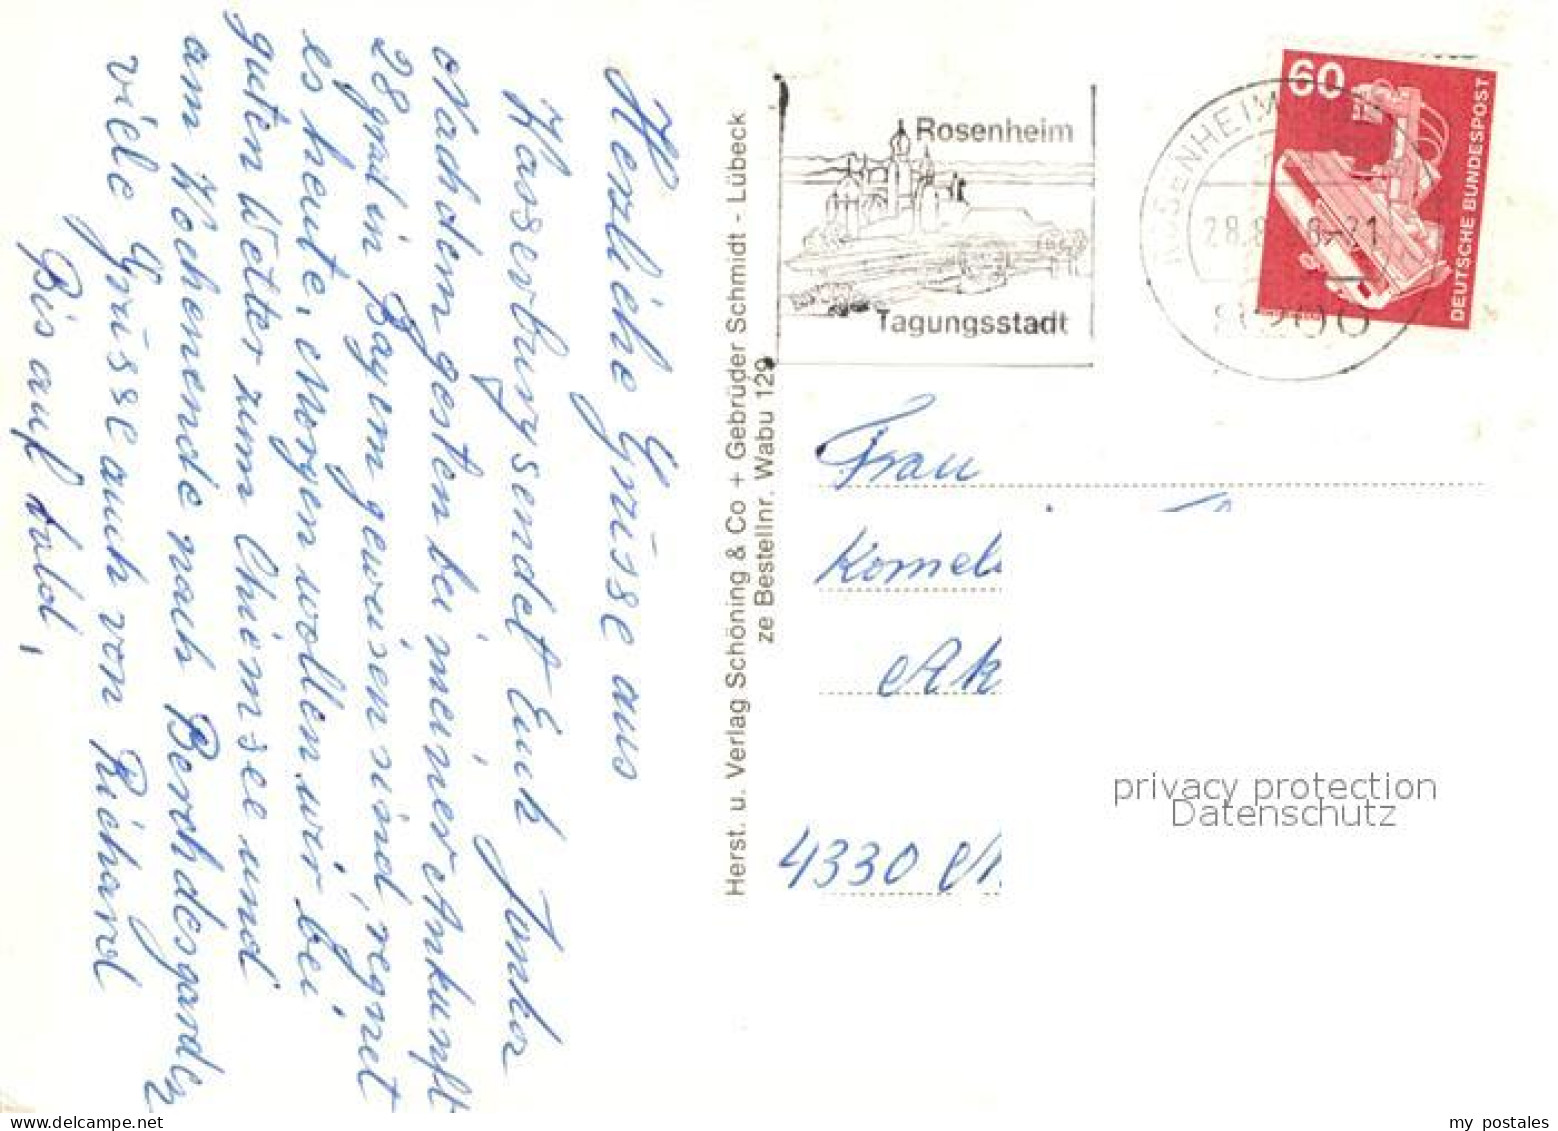 Herzliche Grüsse aus
Wasserburg sendet Euch Janka
Nachdem gestern bei meiner Ankunft
28 grad in Bayern gewesen sind, regnet
es heute, Morgen wollen wir bei
guten Wetter zum Chiemsee und
am Wochenende nach Berchdesgarden
viele Grüsse auch von Richard
Bis auf bald,
Herst. u. Verlag Schöning & Co + Gebrüder Schmidt - Lübeck
ze Bestellnr. Wabu 129
Rosenheim
Tagungsstadt
ROSENHEIM
28.8
-21
8200
60
DEUTSCHE BUNDESPOST
Frau
Kornel
Ak
4330 M
privacy protection
Datenschutz
my postales